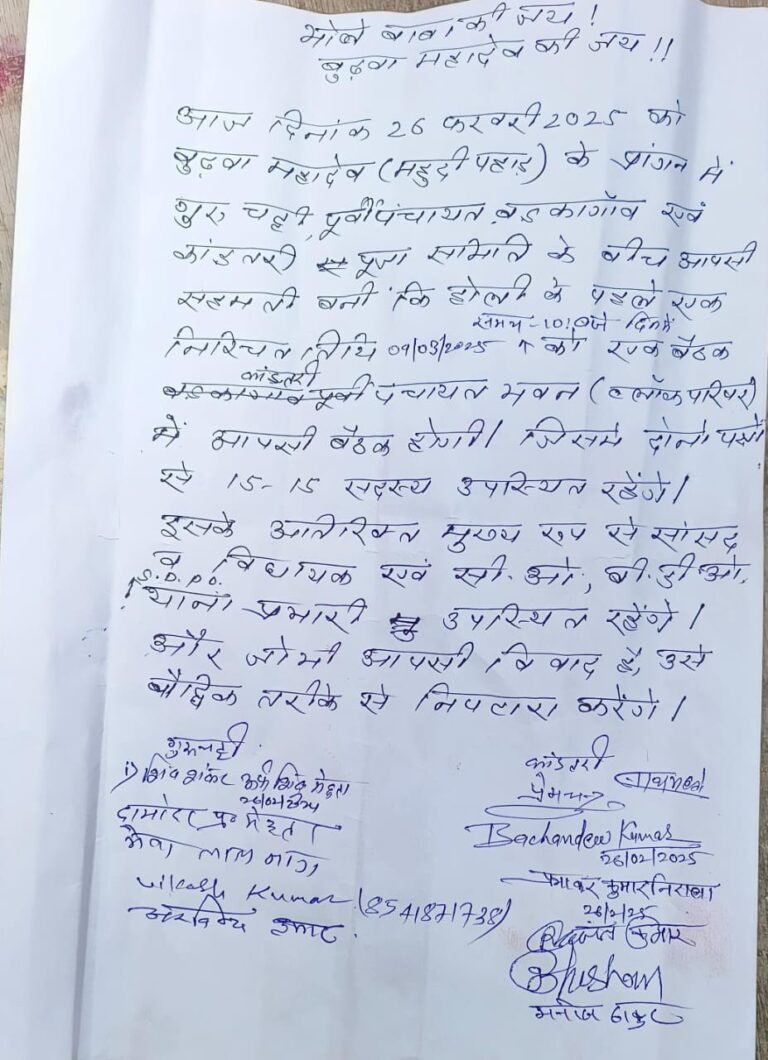 भोले बाबा की जय !
बुढ़वा महादेव की जय !!
आज दिनांक 26 फरवरी 2025 को
बुढ़वा महादेव (महुदी पहाड़) के प्रांगन में
गुरु चट्टी, पूर्वी पंचायत बड़कागाँव एवं
कांडतरी पूजा समिति के बीच आपसी
सहमती बनी कि होली के पहले एक
समय - 10:0 बजे दिन में
निश्चित तिथि 09/03/2025 को एक बैठक
कांडतरी
बड़कागांव पूर्वी पंचायत भवन (ब्लॉक परिषर)
में आपसी बैठक होगी। जिसमे दोनो पक्षों
से 15-15 सदस्य उपस्थित रहेंगे।
इसके अतिरिक्त मुख्य रूप से सांसद
व विधायक एवं सी.ओ., बी.डी.ओ.
S.D.P.O.
थाना प्रभारी उपस्थित रहेंगे।
और जो भी आपसी विवाद है, उसे
बौद्धिक तरीके से निपटारा करेंगे।
गुरुचट्टी
कांडतरी
i) शिव शंकर उर्फ शिबु मेहता
प्रेमचन्द
दामोदर प्र० मेहता
Bachandew Kumar
26/02/2025
मेवा लाल
कुमार निराला
26/2/25
vikash Kumar (8541871738)
कुमार
अरविन्द कुमार
Bhushan
मनोज ठाकुर